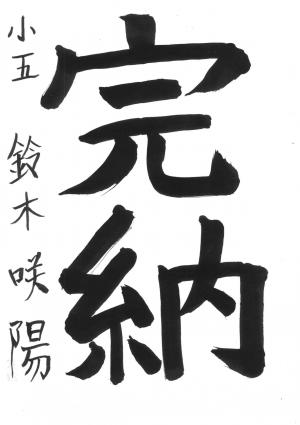 完納
小五 鈴木咲陽